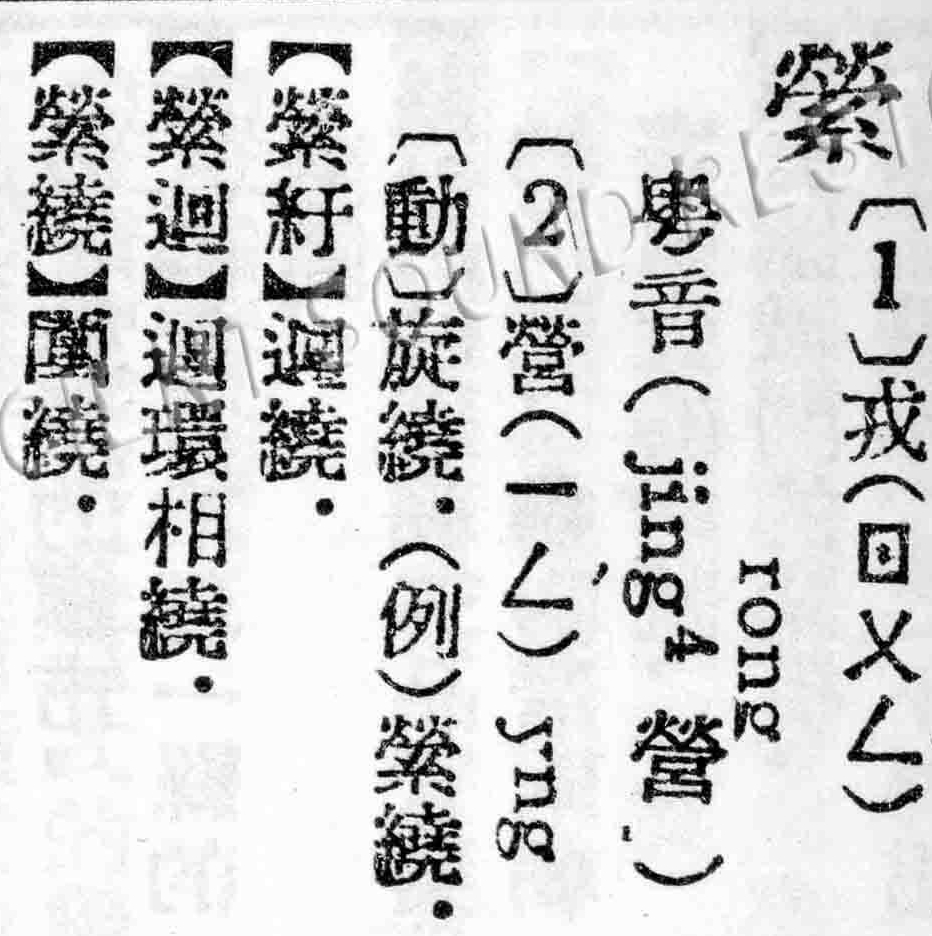 縈
〔1〕戎(ㄖㄨㄥ)
rong
粵音(jing⁴營)
〔2〕營(ㄧㄥ) yng
〔動〕旋繞.(例)縈繞.
【縈紆】迴繞.
【縈迴】迴環相繞.
【縈繞】圍繞.